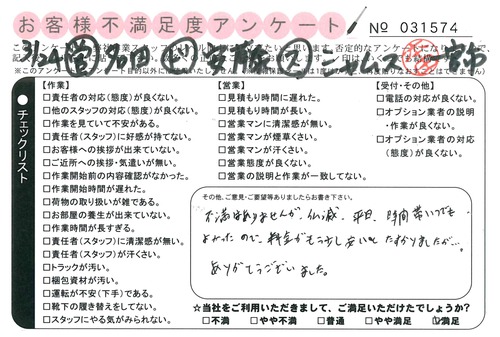 お客様不満足度アンケート
No 031574
3/24
【作業】
□責任者の対応(態度)が良くない。
□他のスタッフの対応(態度)が良くない。
□作業を見ていて不安がある。
□責任者(スタッフ)に好感が持てない。
□お客様への挨拶が出来ていない。
□ご近所への挨拶・気遣いが無い。
□作業開始前の内容確認がなかった。
□作業開始時間が遅れた。
□荷物の取り扱いが雑である。
□お部屋の養生が出来ていない。
□作業時間が長すぎる。
□責任者(スタッフ)に清潔感が無い。
□責任者(スタッフ)が汗くさい。
□トラックが汚い。
□梱包資材が汚い。
□運転が不安(下手)である。
□靴下の履き替えをしてない。
□スタッフにやる気がみられない。
【営業】
□見積もり時間に遅れた。
□見積もり時間が長い。
□営業マンに清潔感が無い。
□営業マンが煙草くさい。
□営業マンが汗くさい。
□営業態度が良くない。
□営業の説明と作業が一致してない。
【受付・その他】
□電話の対応が良くない。
□オプション業者の説明
・作業が良くない。
□オプション業者の対応
(態度)が良くない。
チェックリスト
その他、ご意見・ご要望等ありましたらお書き下さい。
不満はありませんが、仏滅、平日、時間帯いつでも
よかったので、料金がもう少し安いと たすかりましたが…
ありがとうございました。
☆当社をご利用いただきまして、ご満足いただけたでしょうか?
□不満 □やや不満 □普通 □やや満足 ☑満足